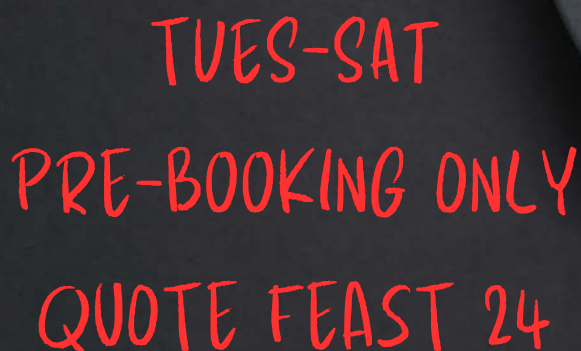 TUES-SAT
PRE-BOOKING ONLY
QUOTE FEAST 24